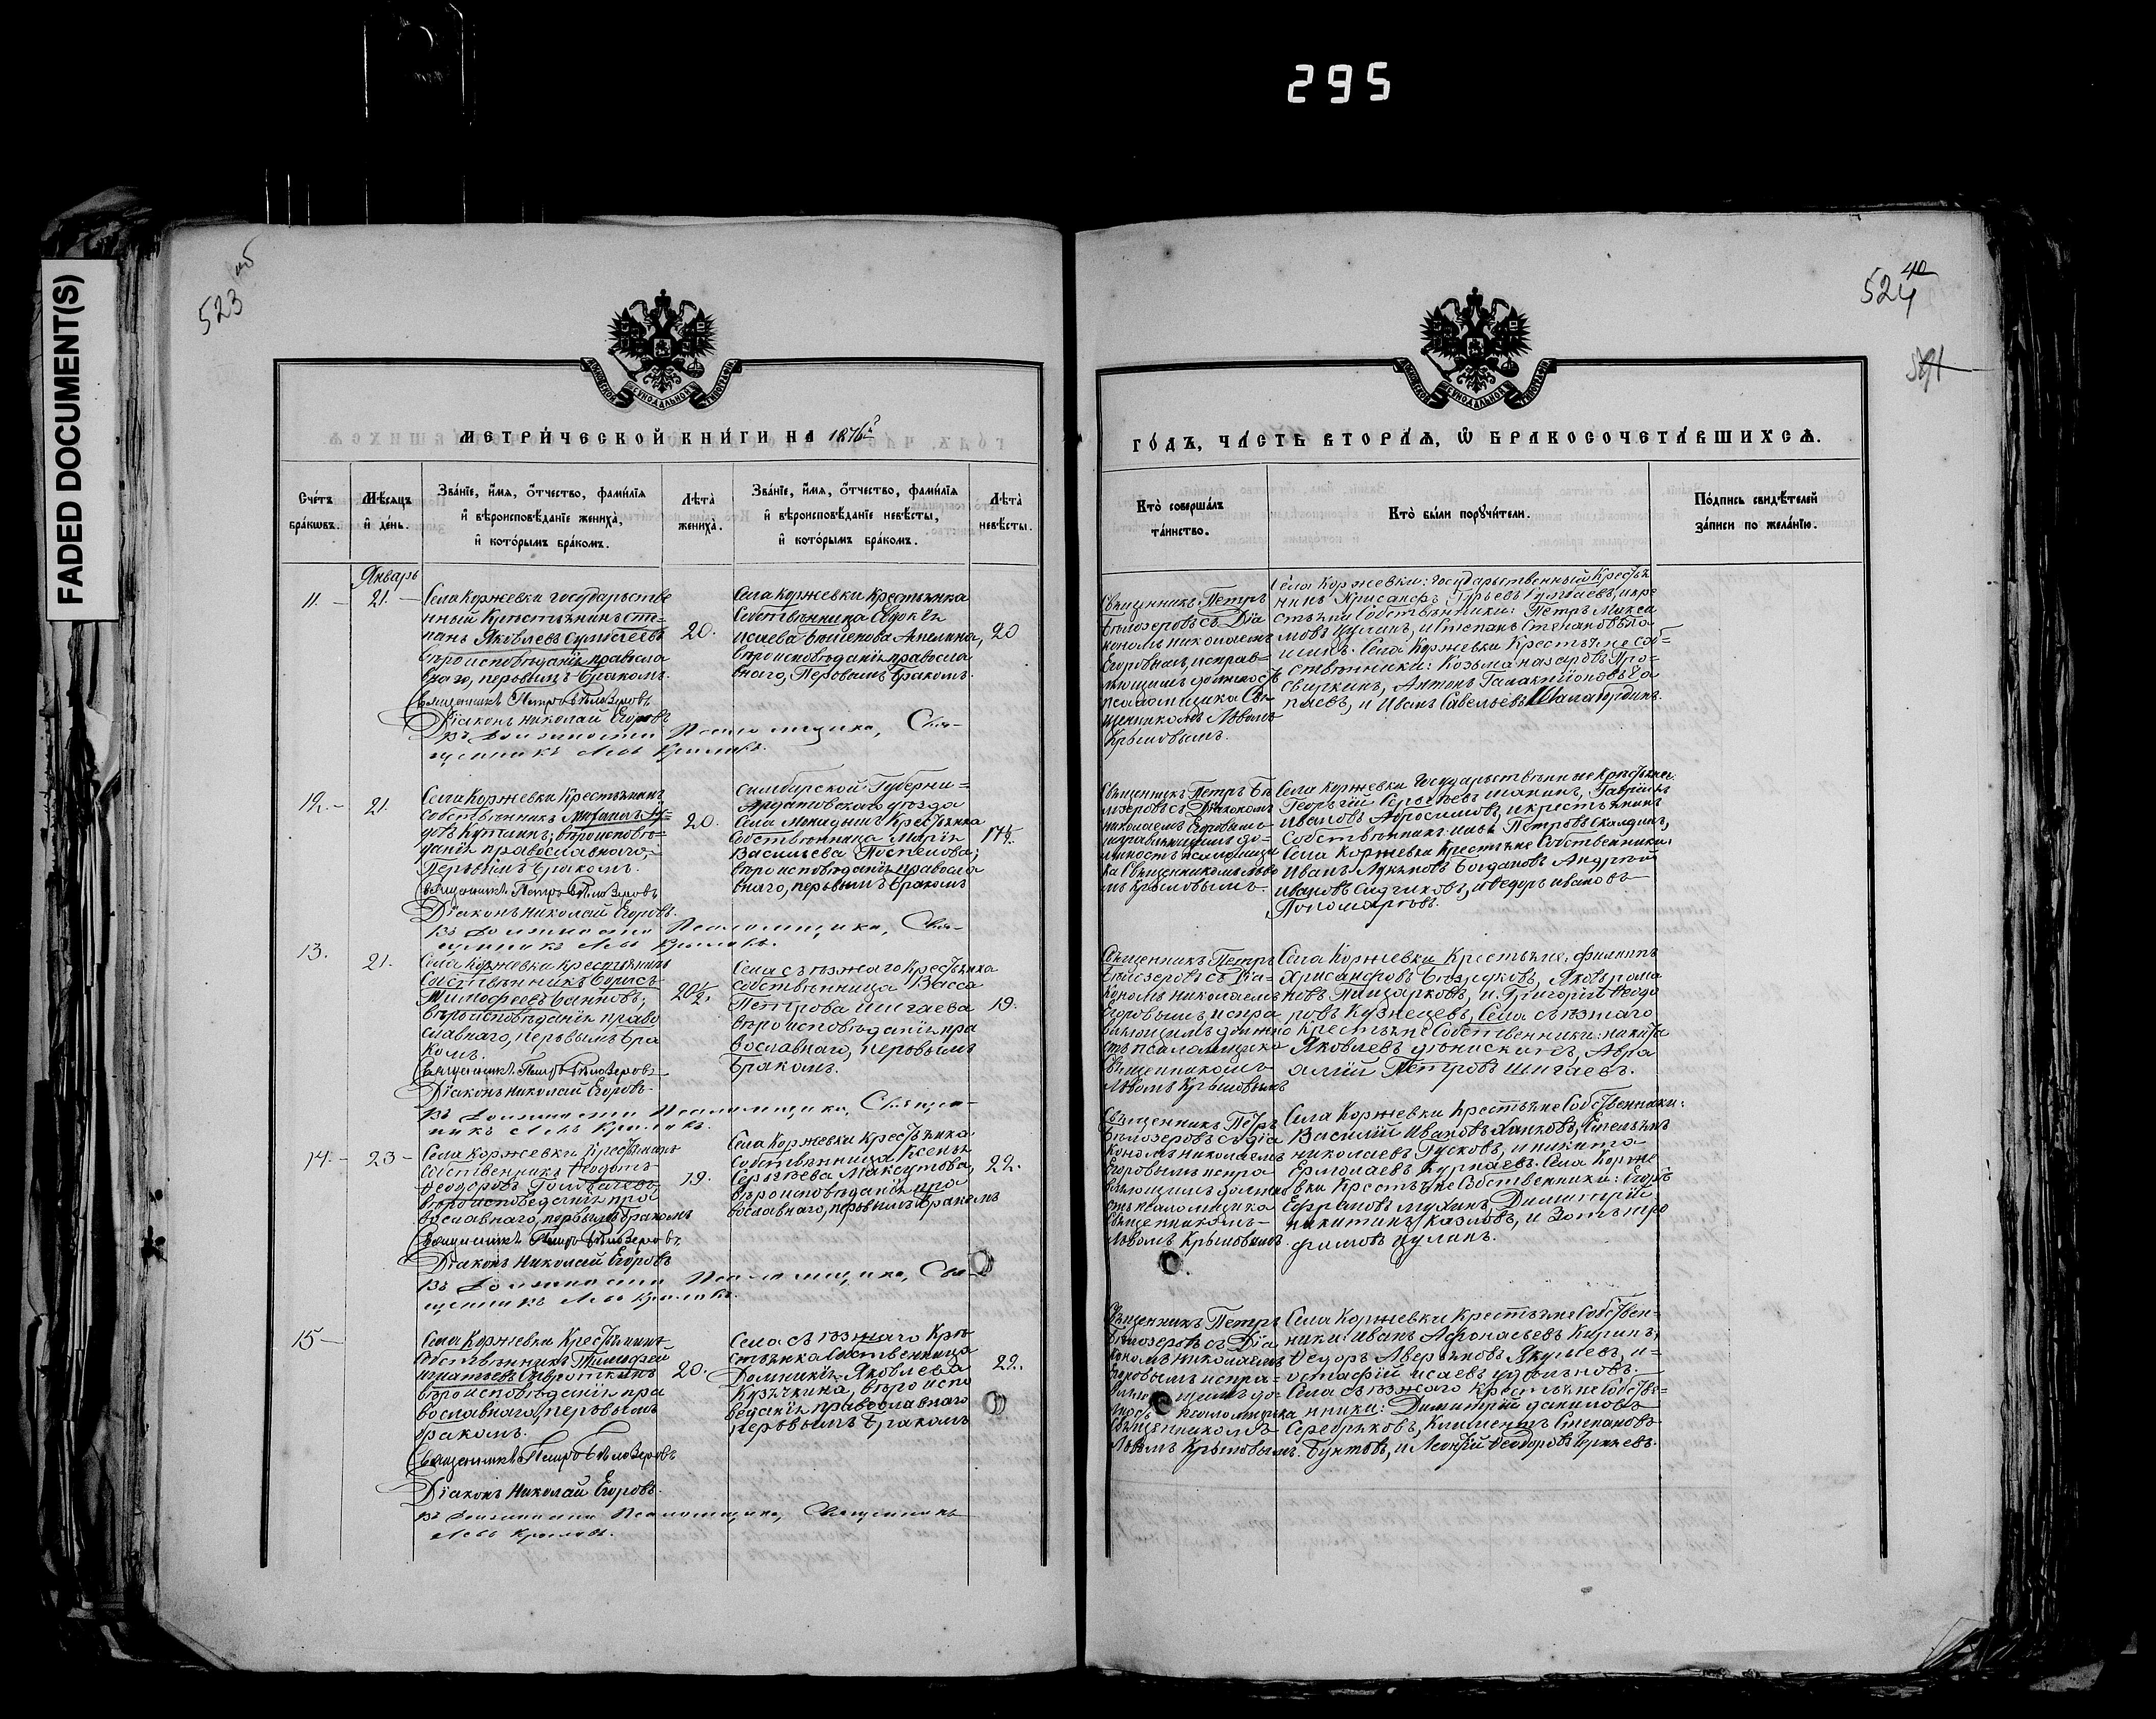 295
FADED DOCUMENT(S)
523
40
524
МОСКОВСКОЙ СУНОДАЛЬНОЙ ТИПОГРАФІИ
МОСКОВСКОЙ СУНОДАЛЬНОЙ ТИПОГРАФІИ
МЕТРИ́ЧЕСКОЙ КНИ́ГИ НА 1876й
ГО́ДЪ, ЧА́СТЬ ВТОРА́Ѧ, Ѿ БРАКОСОЧЕТА́ВШИХСѦ.
Сче́тъ бра́кѡвъ.
Мѣ́сѧцъ и҆ де́нь.
Зва́нїе, и҆́мѧ, ѻ҆́тчество, фами́лїѧ и҆ вѣроисповѣ́данїе жениха̀, и҆ кото́рымъ бра́комъ.
Лѣта̀ жениха̀.
Зва́нїе, и҆́мѧ, ѻ҆́тчество, фами́лїѧ и҆ вѣроисповѣ́данїе невѣ́сты, и҆ кото́рымъ бра́комъ.
Лѣта̀ невѣ́сты.
Кто̀ соверша́лъ та́инство.
Кто̀ бы́ли порꙋчи́тели.
По́дпись свидѣ́телей за́писи по жела́нїю.
Январь
11.
21.
Села Коржевки государстве
нный Крестьянинъ Сте-
панъ Яковлевъ
вѣроисповѣданія правосла
внаго, первымъ бракомъ.
Священникъ Петръ Бѣлозеровъ
Діаконъ Николай Егоровъ
Въ должности Псаломщика, Свя-
щенникъ Левъ Крыловъ.
20.
Села Коржевки Крестьянка
Собственница Евдокія
Исаева
вѣроисповѣданія правосла
внаго, Первымъ бракомъ.
20
Священникъ Петръ
Бѣлозеровъ съ Діа
кономъ Николаемъ
Егоровымъ, исправ-
ляющимъ должность
псаломщика Свя-
щенникомъ Львомъ
Крыловымъ.
Села Коржевки: государственный Крестья
нинъ Хрисанфъ Гурьевъ и кре
стьяне Собственники: Петръ Макси
мовъ Цулинъ, и Степанъ Степановъ
Села Коржевки Крестьяне соб-
ственники: Козьма Назаровъ Про-
свиркинъ, Антонъ Галактіоновъ
и Иванъ Савельевъ
12.
21.
Села Коржевки Крестьянинъ
собственникъ
вѣроисповѣ-
данія православнаго,
Первымъ бракомъ.
Священникъ Петръ Бѣлозеровъ
Діаконъ Николай Егоровъ.
Въ должности Псаломщика, Свя-
щенникъ Левъ Крыловъ.
20.
Симбирской Губерніи
Ардатовскаго уѣзда
Села Крестьянка
Собственница Марія
Васильева Поспелова;
вѣроисповѣданія правосла
внаго, первымъ бракомъ
Священникъ Петръ Бѣ
лозеровъ съ Діакономъ
Николаемъ Егоровымъ
исправляющимъ до-
лжность псаломщи
ка Священникомъ Льво
мъ Крыловымъ.
Села Коржевки Государственные Крестьяне:
Георгій Сергѣевъ Гаврилъ
Ивановъ Абросимовъ, и крестьянинъ
Собственникъ: Петровъ
Села Коржевки Крестьяне Собственники:
Иванъ Богдановъ Андрей
Ивановъ и Ѳедоръ Ивановъ
Пономаревъ.
13.
21.
Села Коржевки Крестьянинъ
Собственникъ Борисъ
Тимофеевъ
вѣроисповѣданія право
славнаго, первымъ бра
комъ.
Священникъ Петръ Бѣлозеровъ
Діаконъ Николай Егоровъ.
Въ должности Псаломщика, Священ-
никъ Левъ Крыловъ.
20½.
Села Съѣзжаго Крестьянка
собственница Васса
Петрова Шигаева
вѣроисповѣданія пра
вославнаго, первымъ
бракомъ.
19.
Священникъ Петръ
Бѣлозеровъ съ Діа-
кономъ Николаемъ
Егоровымъ испра
вляющимъ должно
сть псаломщика
Священникомъ
Львомъ Крыловымъ
Села Коржевки Крестьяне, Филиппъ
Хрисанфовъ Яковъ Рома
новъ и Григорій Ѳеодо
ровъ Кузнецовъ, Села Съѣзжаго
Крестьяне Собственники: Никита
Яковлевъ Авра
амій Петровъ Шигаевъ.
14.
23
Села Коржевки Крестьянинъ
Собственникъ Ѳеодотъ
Ѳеодоровъ
вѣроисповеданія пра
вославнаго, первымъ бракомъ
Священникъ Петръ Бѣлозеровъ,
Діаконъ Николай Егоровъ
Въ должности Псаломщика, Свя-
щенникъ Левъ Крыловъ.
19.
Села Коржевки Крестьянка
Собственница Ксенія
Сергѣева Максутова,
вѣроисповѣданія пра
вославнаго, первымъ бракомъ
22.
Священникъ Петръ
Бѣлозеровъ съ Діа
кономъ Николаемъ
Егоровымъ испра
вляющимъ должно
сть псаломщика
Священникомъ
Львомъ Крыловымъ
Села Коржевки Крестьяне Собственники:
Василій Ивановъ
Николаевъ Гусковъ, и Никита
Ермолаевъ Села Корже
вки Крестьяне Собственники: Егоръ
Мухинъ, Димитрій
Никитинъ Казловъ, и Зотъ Тро
фимовъ Цулинъ.
15
Села Коржевки Крестьянинъ
Собственникъ Тимофей
Игнатьевъ Сивроткинъ
вѣроисповѣданія пра
вославнаго, первымъ
бракомъ.
Священникъ Петръ Бѣлозеровъ
Діаконъ Николай Егоровъ.
Въ должности Псаломщика, Священникъ
Левъ Крыловъ.
20.
Села Съѣзжаго Кре
стьянка Собственница
Домникія Яковлева
Кузячкина, вѣроиспо
веданія православнаго
первымъ бракомъ
22.
Священникъ Петръ
Бѣлозеровъ съ Діа
кономъ Николаемъ
Егоровымъ испра-
вляющимъ до-
лжность псаломщика
Священникомъ
Львомъ Крыловымъ.
Села Коржевки Крестьяне Собствен-
ники: Иванъ Афонасьевъ Киринъ;
Ѳедоръ Аверьяновъ и
Остафій Исаевъ
Села Съѣзжаго Крестьяне Собстве-
нники: Димитрій Даниловъ
Серебряковъ, Климентъ Степановъ
Бунтовъ, и Леонтій Ѳеодоровъ